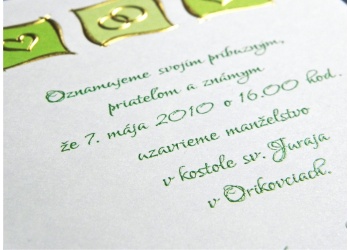 Oznamujeme svojim príbuzným,
priateľom a známym
že 7. mája 2010 o 16.00 hod.
uzavrieme manželstvo
v kostole sv. Juraja
v Orikovciach.